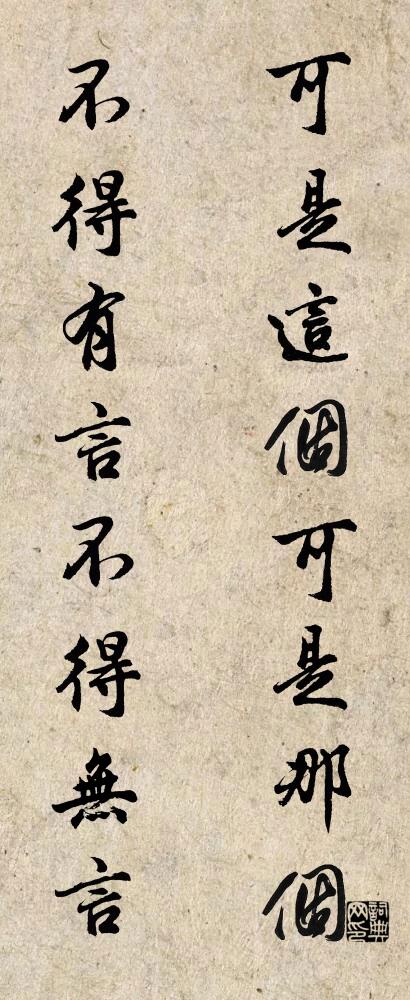 可是這個可是那個
不得有言不得無言
詞典网印